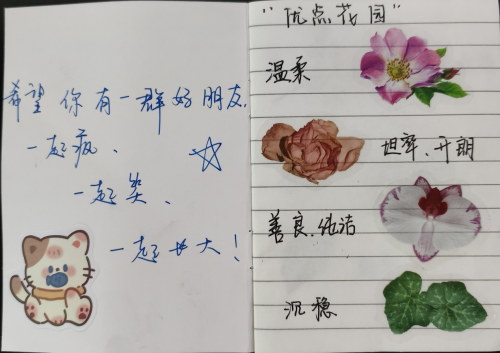 希望你有一群好朋友,
一起疯、
一起笑、
一起长大!
"优点花园"
温柔
坦率、开朗
善良、纯洁
沉稳